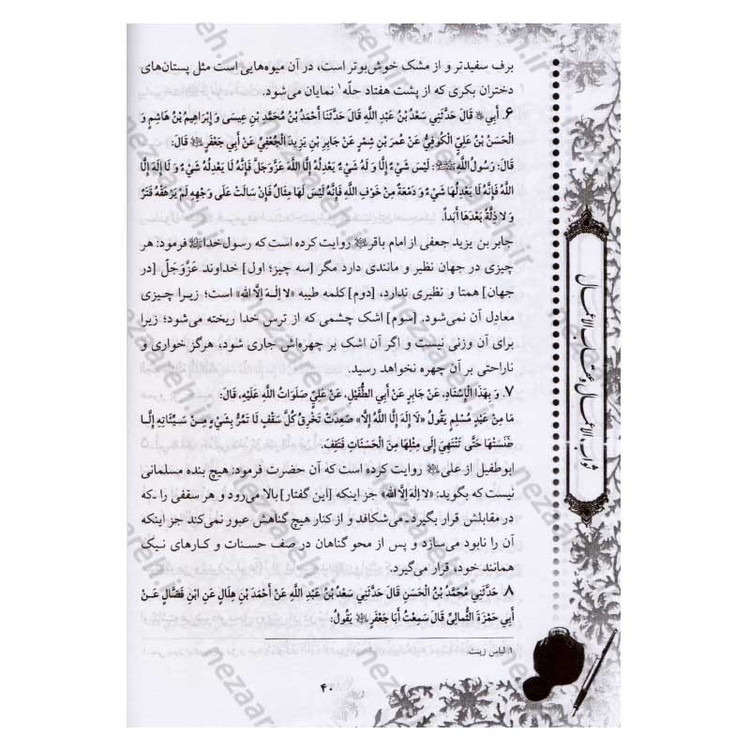 برف سفیدتر و از مشک خوش‌بوتر است، در آن میوه‌هایی است مثل پستان‌های
دختران بکری که از پشت هفتاد حلّه۱ نمایان می‌شود.
۶. أَبِي قَالَ حَدَّثَنِي سَعْدُ بْنُ عَبْدِ اللَّهِ قَالَ حَدَّثَنَا أَحْمَدُ بْنُ مُحَمَّدِ بْنِ عِيسَى وَ إِبْرَاهِيمُ بْنُ هَاشِمٍ وَ
الْحَسَنُ بْنُ عَلِيٍّ الْكُوفِيُّ عَنْ عُمَرَ بْنِ شِمْرٍ عَنْ جَابِرِ بْنِ يَزِيدَ الْجُعْفِيِّ عَنْ أَبِي جَعْفَرٍ قَالَ:
قَالَ: رَسُولُ اللَّهِ: لَيْسَ شَيْءٌ إِلَّا وَ لَهُ شَيْءٌ يَعْدِلُهُ إِلَّا اللَّهَ عَزَّوَجَلَّ فَإِنَّهُ لَا يَعْدِلُهُ شَيْءٌ وَ لَا إِلَهَ إِلَّا
اللَّهُ فَإِنَّهُ لَا يَعْدِلُهَا شَيْءٌ وَ دَمْعَةً مِنْ خَوْفِ اللَّهِ فَإِنَّهُ لَيْسَ لَهَا مِثْقَالٌ فَإِنْ سَالَتْ عَلَى وَجْهِهِ لَمْ يَرْهَقْهُ قَتَرٌ
وَ لَا ذِلَّةٌ بَعْدَهَا أَبَداً.
جابر بن یزید جعفی از امام باقر روایت کرده است که رسول خدا فرمود: هر
چیزی در جهان نظیر و مانندی دارد مگر [سه چیز؛ اول] خداوند عَزَّوَجَلَّ [در
جهان] همتا و نظیری ندارد، [دوم] کلمه طیبه «لا إله إلّا الله» است؛ زیرا چیزی
معادل آن نمی‌شود. [سوم] اشک چشمی که از ترس خدا ریخته می‌شود؛ زیرا
برای آن وزنی نیست و اگر آن اشک بر چهره‌اش جاری شود، هرگز خواری و
ناراحتی بر آن چهره نخواهد رسید.
۷. وَ بِهَذَا الْإِسْنَادِ، عَنْ جَابِرٍ عَنْ أَبِي الطُّفَيْلِ، عَنْ عَلِيٍّ صَلَوَاتُ اللَّهِ عَلَيْهِ، قَالَ:
مَا مِنْ عَبْدٍ مُسْلِمٍ يَقُولُ «لَا إِلَهَ إِلَّا اللَّهُ إِلَّا» صَعِدَتْ تَخْرِقُ كُلَّ سَقْفٍ لَا تَمُرُّ بِشَيْءٍ مِنْ سَيِّئَاتِهِ إِلَّا
طَلَسَتْهَا حَتَّى تَنْتَهِيَ إِلَى مِثْلِهَا مِنَ الْحَسَنَاتِ فَتَقِفَ.
ابوطفیل از علی روایت کرده است که آن حضرت فرمود: هیچ بنده مسلمانی
نیست که بگوید: «لا إله إلّا الله» جز اینکه [این گفتار] بالا می‌رود و هر سقفی را ـ که
در مقابلش قرار بگیرد ـ می‌شکافد و از کنار هیچ گناهش عبور نمی‌کند جز اینکه
آن را نابود می‌سازد و پس از محو گناهان در صف حسنات و کارهای نیک
همانند خود، قرار می‌گیرد.
۸. حَدَّثَنِي مُحَمَّدُ بْنُ الْحَسَنِ قَالَ حَدَّثَنِي سَعْدُ بْنُ عَبْدِ اللَّهِ عَنْ أَحْمَدَ بْنِ هِلَالٍ عَنِ ابْنِ فَضَّالٍ عَنْ
أَبِي حَمْزَةَ الثُّمَالِيِّ قَالَ سَمِعْتُ أَبَا جَعْفَرٍ يَقُولُ:
۱. لباس زینت.
۴۰
ثواب الاعمال و عقاب الاعمال
nezaareh.ir